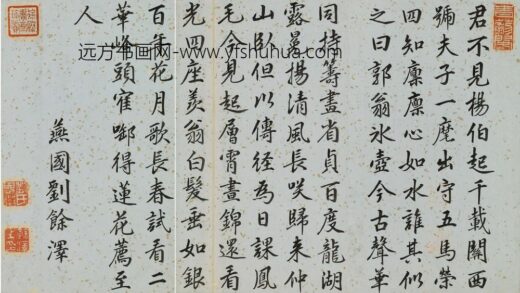 君不見楊伯起千載關西
號夫子一麾出守五馬榮
四知凜凜心如水誰其似
之曰郭翁冰壺今古聲華
同持籌畫省貞百度龍湖
露冕揚清風長嘆歸來仲
山臥但以傳經為日課鳳
毛今見起層霄晝錦還看
光四座羨翁白髮垂如銀
百年花月歌長春試看二
華峰頭隺啣得蓮花薦至
人
燕國劉餘澤
远方书画网 yfshuhua.com